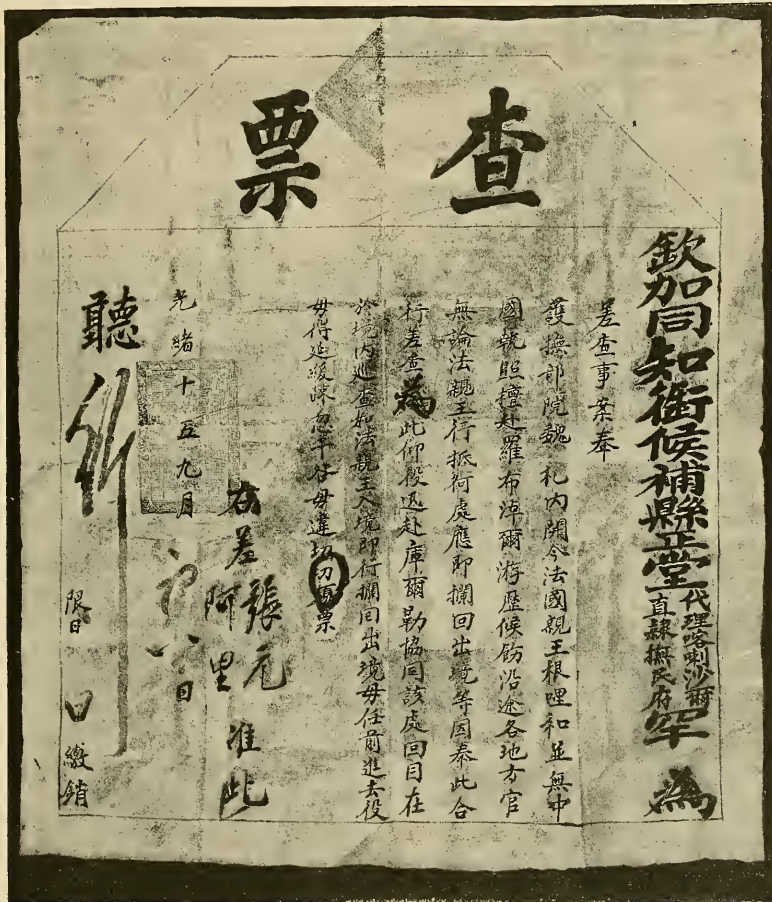 查票
欽加同知銜候補縣正堂代理喀喇沙爾直隸撫民府罕 為
差查事案奉
護撫部院魏 札內開今法國親王根哩和並無中
國執照擅赴羅布淖爾游歷候飭沿途各地方官
無論法親王行抵何處應即攔回出境等因奉此合
行差查為此仰役迅赴庫爾勒協同該處回目在
於境內巡查如法親王入境即行攔回出境毋任前進去役
毋得延緩疎忽干咎毋違切切須票
右差 張元 阿里 准此
光緒十五九月 八日
聽
限日 日繳銷